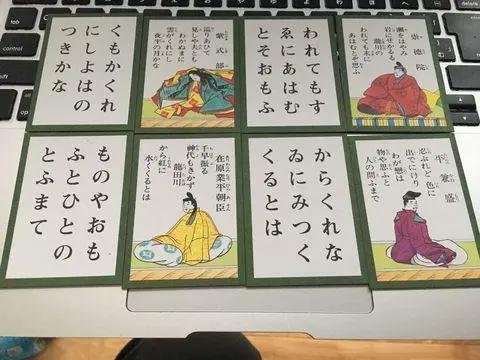 くもかくれ
にしよはの
つきかな
紫式部
巡りあひて
見しや夫とも
わかぬまに
雲がくれにし
夜半の月かな
われてもす
ゑにあはむ
とそおもふ
崇徳院
瀬をはやみ
岩にせかるる
瀧川の
われても末に
あはむとぞ思ふ
ものやおも
ふとひとの
とふまて
在原業平朝臣
千早振る
神代もきかず
龍田川
から紅に
水くくるとは
からくれな
ゐにみつく
くるとは
平兼盛
忍ぶれど 色に
出でにけり
わが戀は
物や思ふと
人の問ふまで